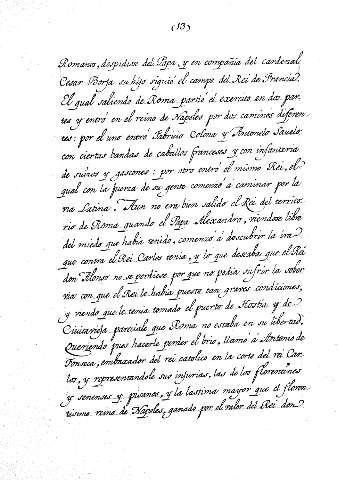 (13)
Romano, despidiose del Papa, y en compañia del cardenal
Cesar Borja su hijo siguió el campo del Rei de Francia.
El qual saliendo de Roma partió el exercito en dos par-
tes y entró en el reino de Napoles por dos caminos diferen-
tes: por el uno entró Fabricio Colona y Antonelo Savelo
con ciertas bandas de caballos franceses y con infanteria
de suiços y gascones: por otro entró el mismo Rei, el
qual con la fuerza de su gente comenzó a caminar por la
via Latina. Aun no era bien salido el Rei del territo-
rio de Roma quando el Papa Alexandro, viendose libre
del miedo que habia tenido, comenzó á descubrir la ira
que contra el Rei Carlos tenia, y lo que deseaba que el Rei
don Alonso no se perdiese por que no podia sufrir la sober-
via con que el Rei le habia puesto tan graves condiciones,
y viendo que le tenia tomado el puerto de Hostia y de
Civitavieja pareciale que Roma no estaba en su libertad.
Queriendo pues hacerle perder el brio, llamó a Antonio de
Fonseca, embaxador del rei catolico en la corte del rei Car-
los, y representandole sus injurias, las de los florentines
y seneses y pisanos, y la lastima mayor que el floren-
tisimo reino de Napoles, ganado por el valor del Rei don